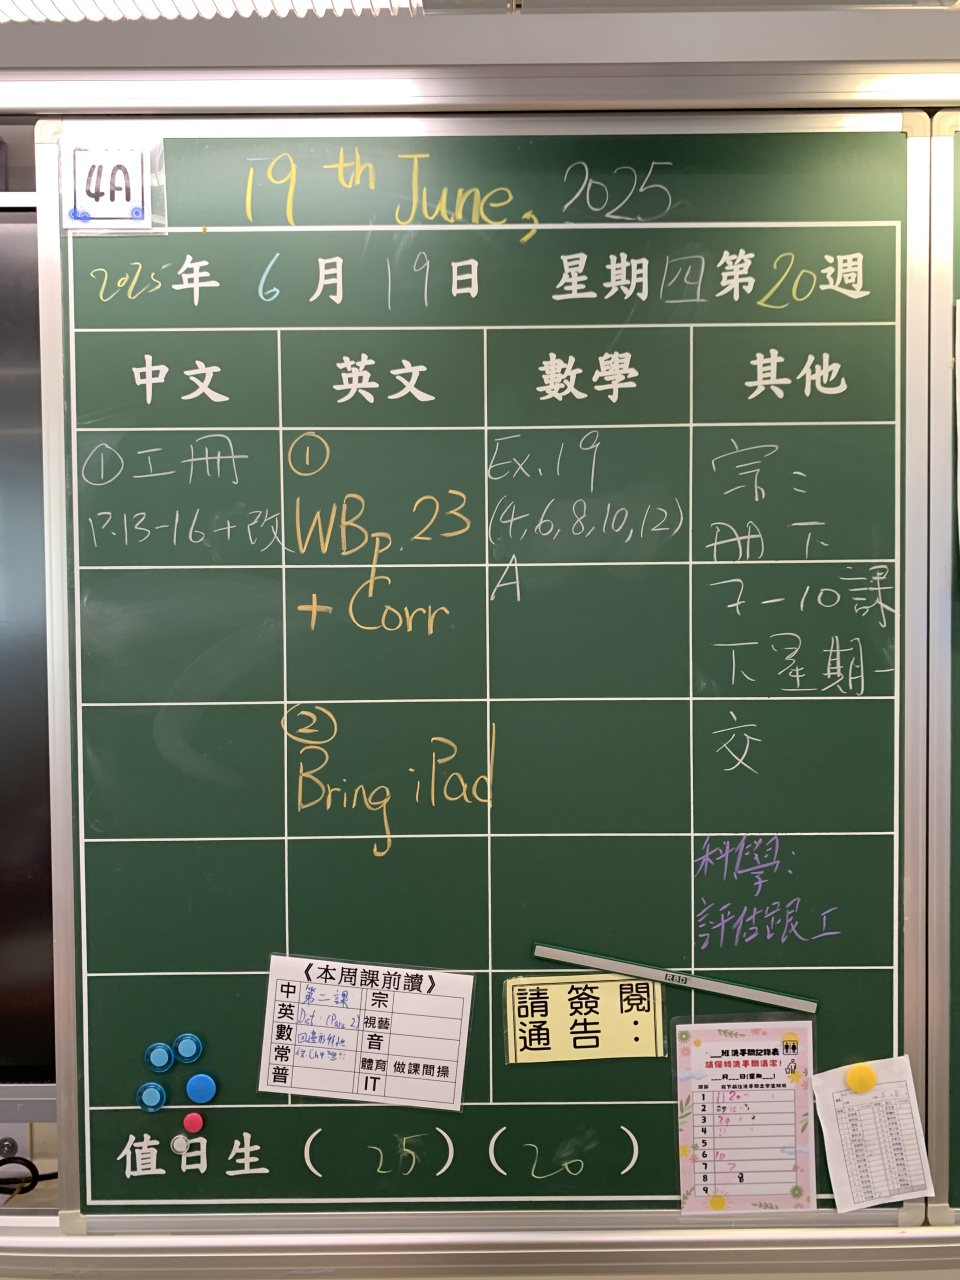 4A
19th June, 2025
2025年 6月 19日 星期四 第20週
中文
英文
數學
其他
①工冊
P.13-16+改
①
WBp.23
+ Corr
②
Bring iPad
Ex.19
(4,6,8,10,12)
A
宗:
冊下
7-10課
下星期一
交
科學:
評估跟工
《本周課前讀》
中 第二課
英 Dict. (Para 2)
數
常
普
宗
視藝
音
體育 做課間操
IT
RBD
請簽閱
通告:
班洗手間記錄表
請保持洗手間清潔!
1
2
3
4
5
6 10
7 7
8 8
9
值日生 (25) (20)